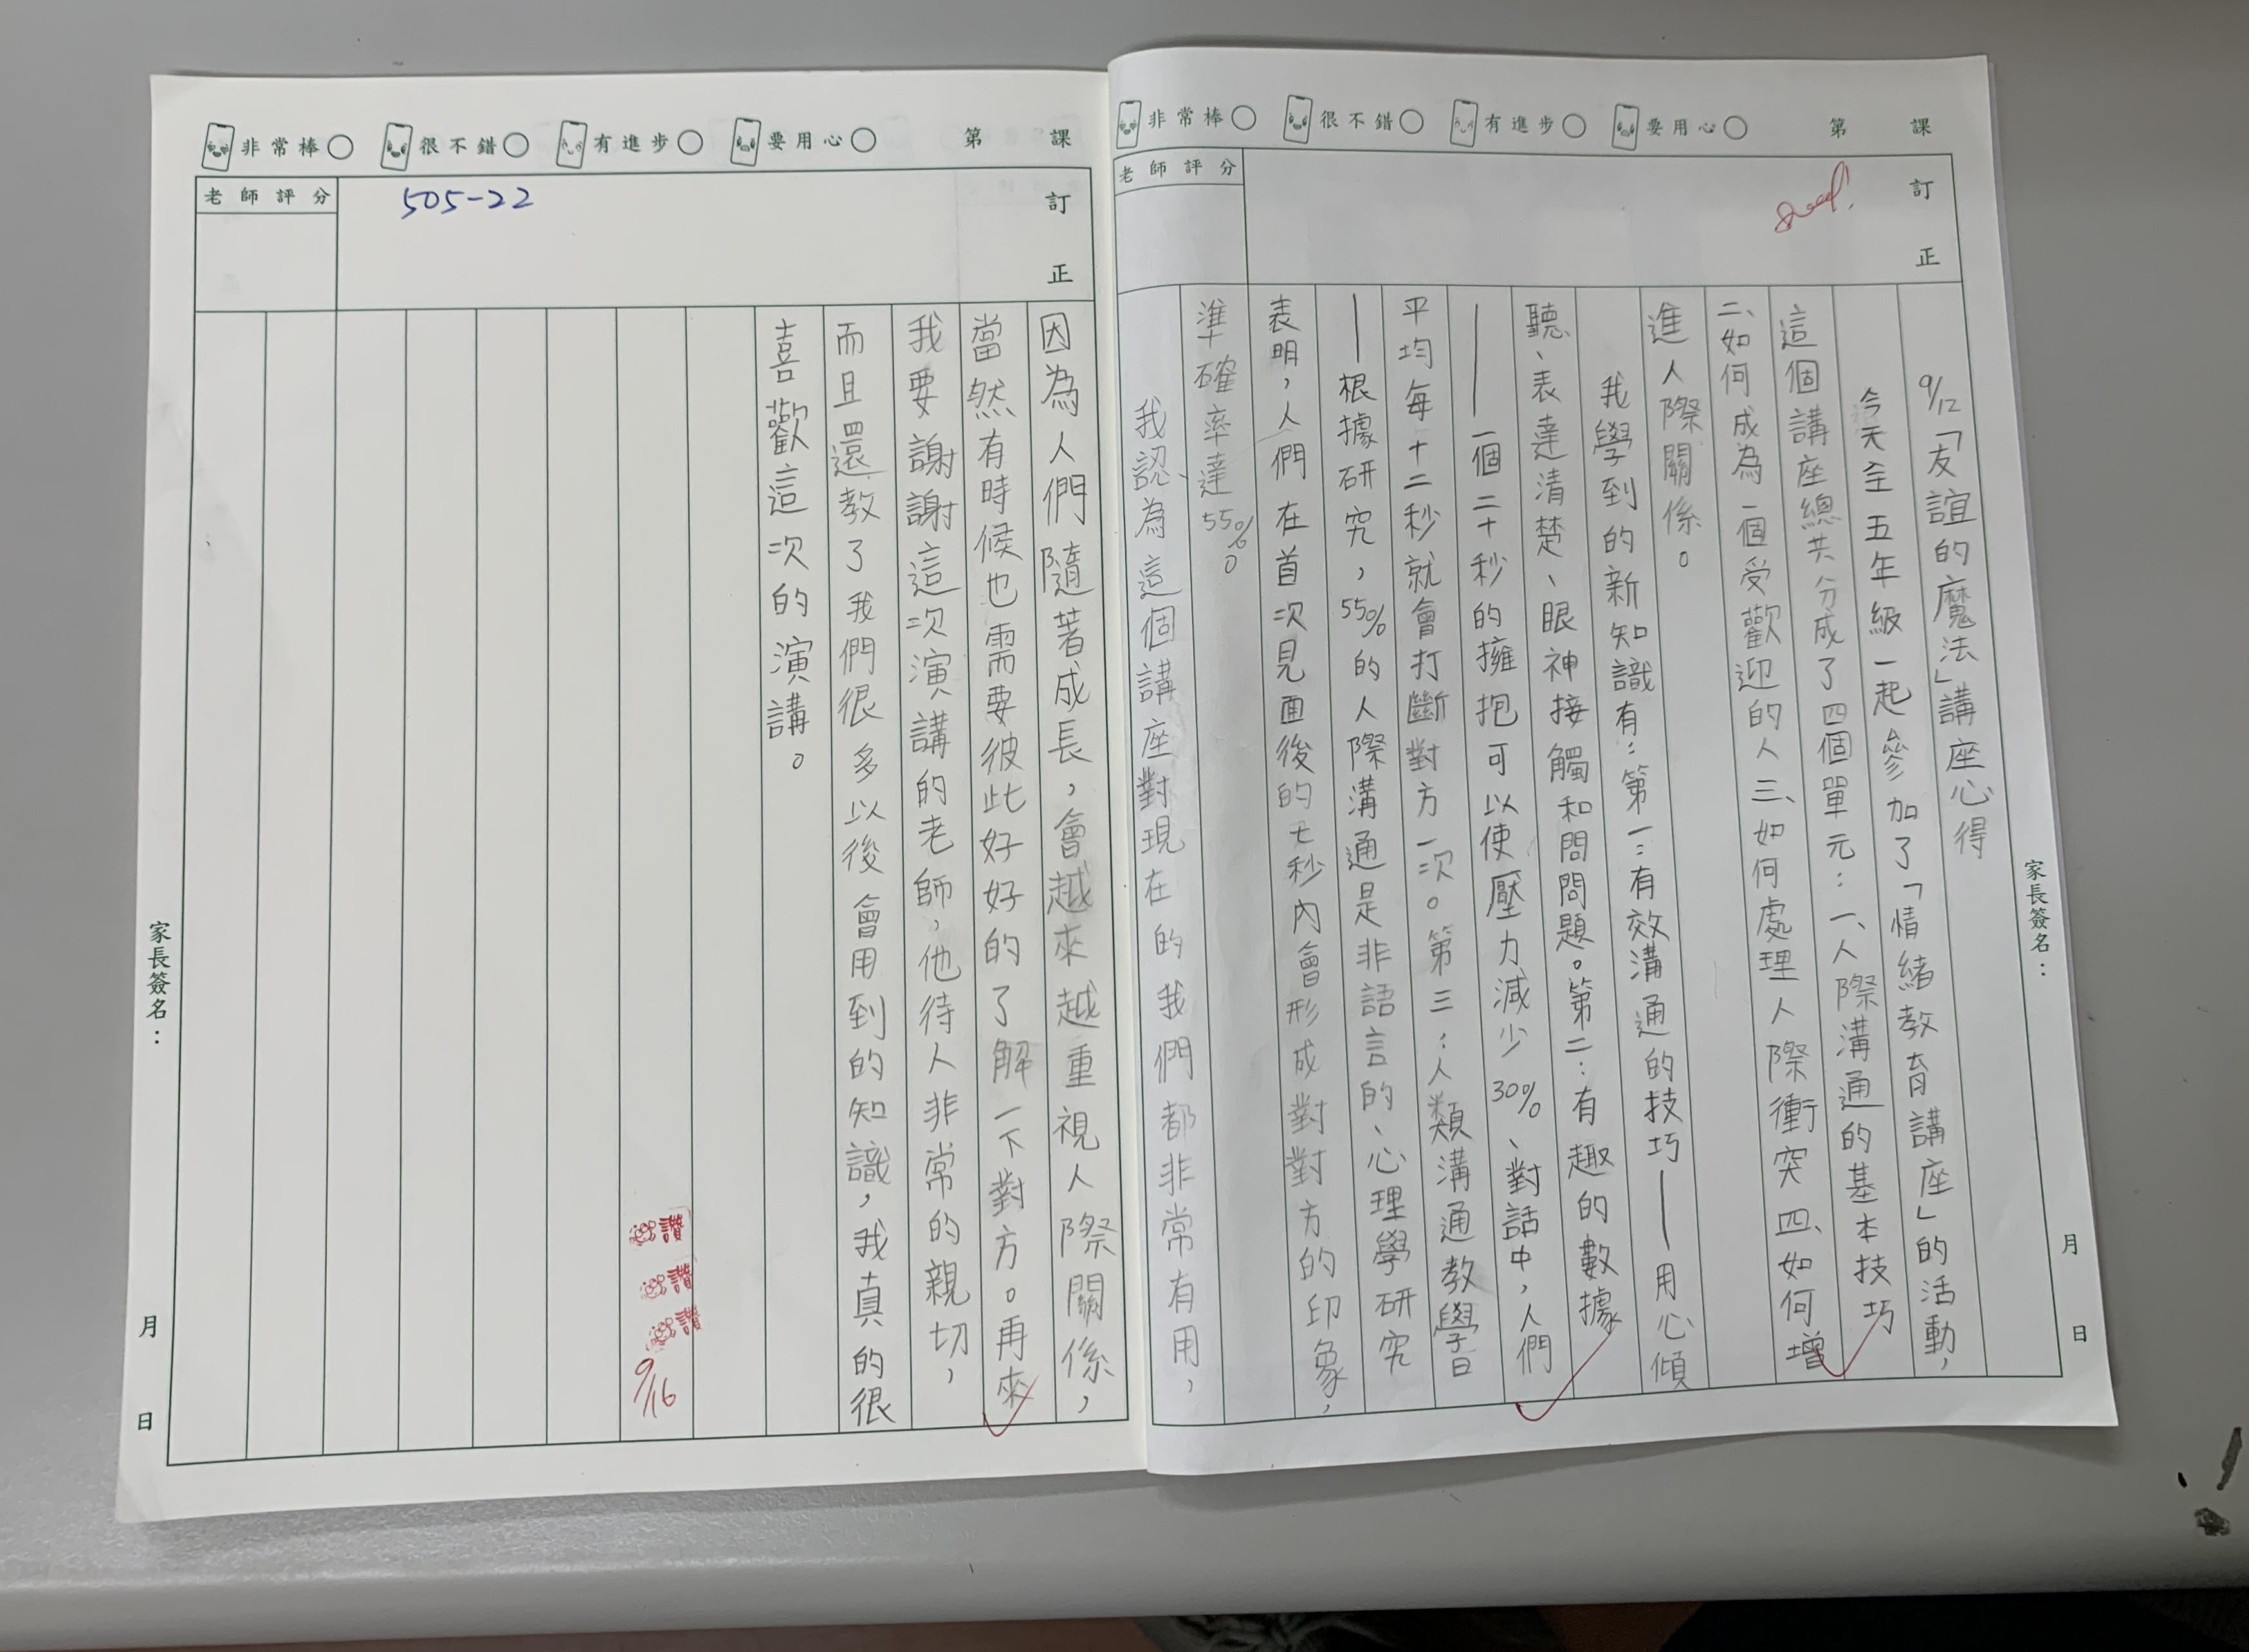 非常棒 很不錯 有進步 要用心 第 課
老師評分
訂正
Good!
9/12「友誼的魔法」講座心得
今天全五年級一起參加了「情緒教育講座」的活動，
這個講座總共分成了四個單元：一、人際溝通的基本技巧
二、如何成為一個受歡迎的人三、如何處理人際衝突四、如何增
進人際關係。
我學到的新知識有：第一：有效溝通的技巧——用心傾
聽、表達清楚、眼神接觸和問問題。第二：有趣的數據
——一個二十秒的擁抱可以使壓力減少30%、對話中，人們
平均每十二秒就會打斷對方一次。第三：人類溝通教學
——根據研究，55%的人際溝通是非語言的、心理學研究
表明，人們在首次見面後的七秒內會形成對對方的印象，
準確率達55%。
我認為這個講座對現在的我們都非常有用，
家長簽名：
月 日
非常棒 很不錯 有進步 要用心 第 課
老師評分
訂正
505-22
因為人們隨著成長，會越來越重視人際關係，
當然有時候也需要彼此好好的了解一下對方。再來
我要謝謝這次演講的老師，他待人非常的親切，
而且還教了我們很多以後會用到的知識，我真的很
喜歡這次的演講。
讚
讚
讚
9/16
家長簽名：
月 日